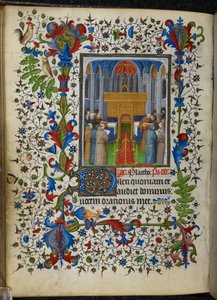 Placebo Ps
Dilexi quoniam ex
audiet dominus
uocem orationis mee.